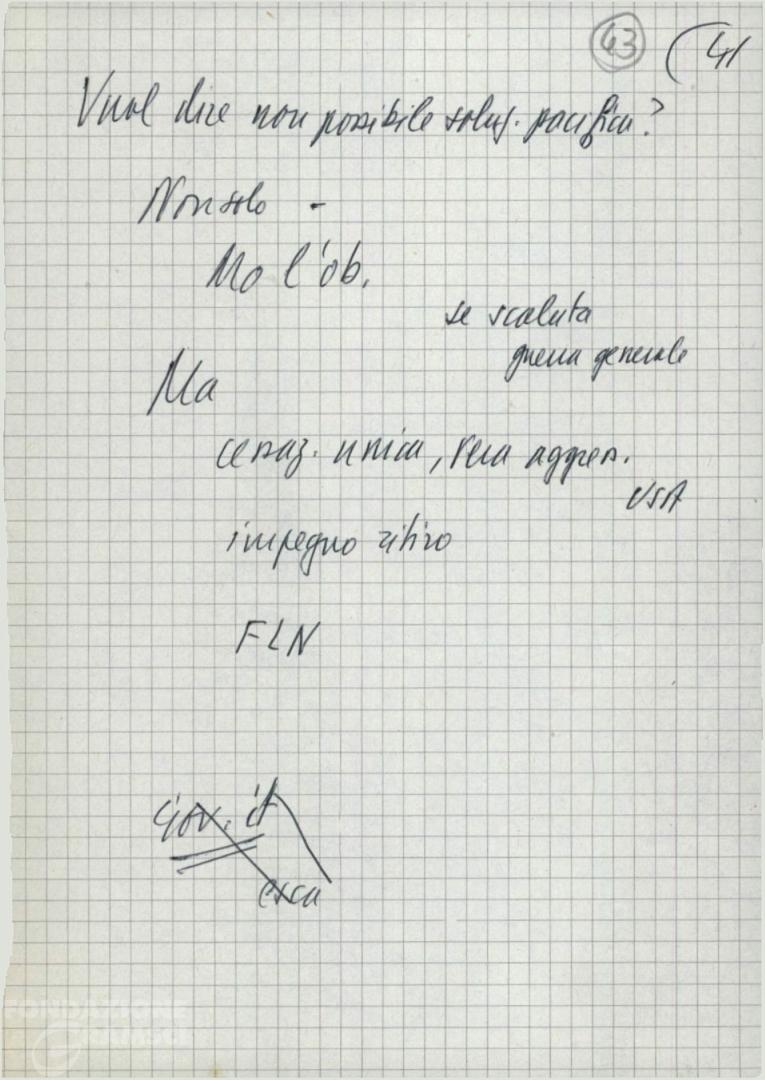 43 (41
Vuol dire non possibile soluz. pacifica?
Non solo -
Ma l'ob.
se scalata
guerra generale
Ma
cessaz. unica, vera aggress.
USA
impegno ritiro
FLN
Gov. it
esca
FONDAZIONE
GRAMSCI